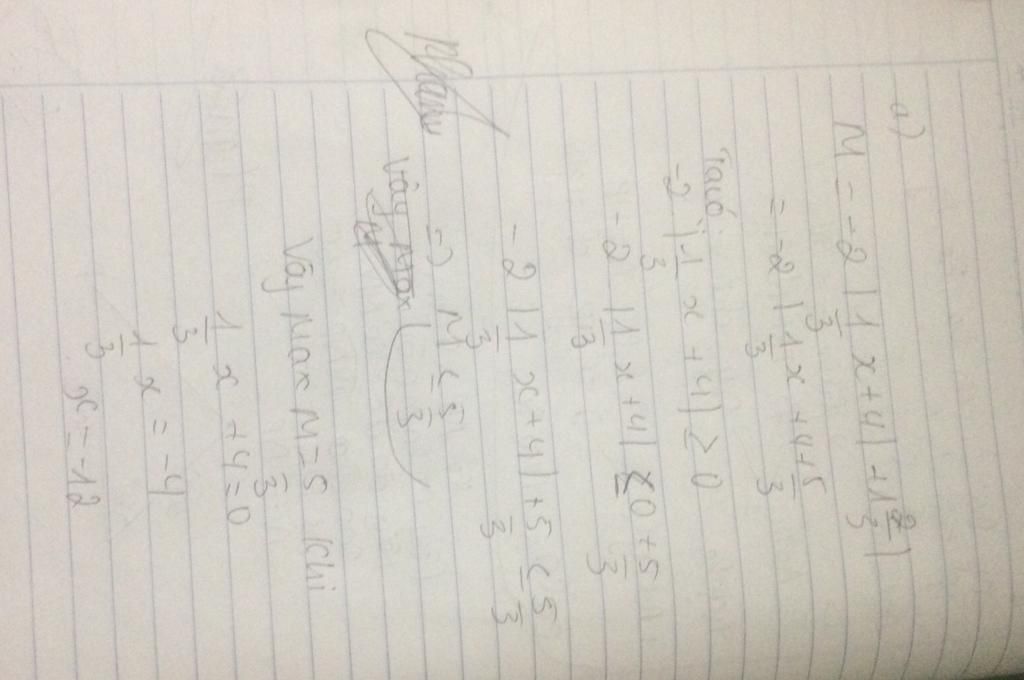 a)
M = -2 |1/3 x + 4| + 1 2/3
= -2 |1/3 x + 4 + 5/3
Ta có:
-2 |1/3 x + 4| ≥ 0
-2 |1/3 x + 4| ≤ 0 + 5/3
-2 |1/3 x + 4| + 5/3 ≤ 5/3
=> M ≤ 5/3
Vậy Max
Vậy Max M = 5/3 khi
1/3 x + 4 = 0
1/3 x = -4
x = -12